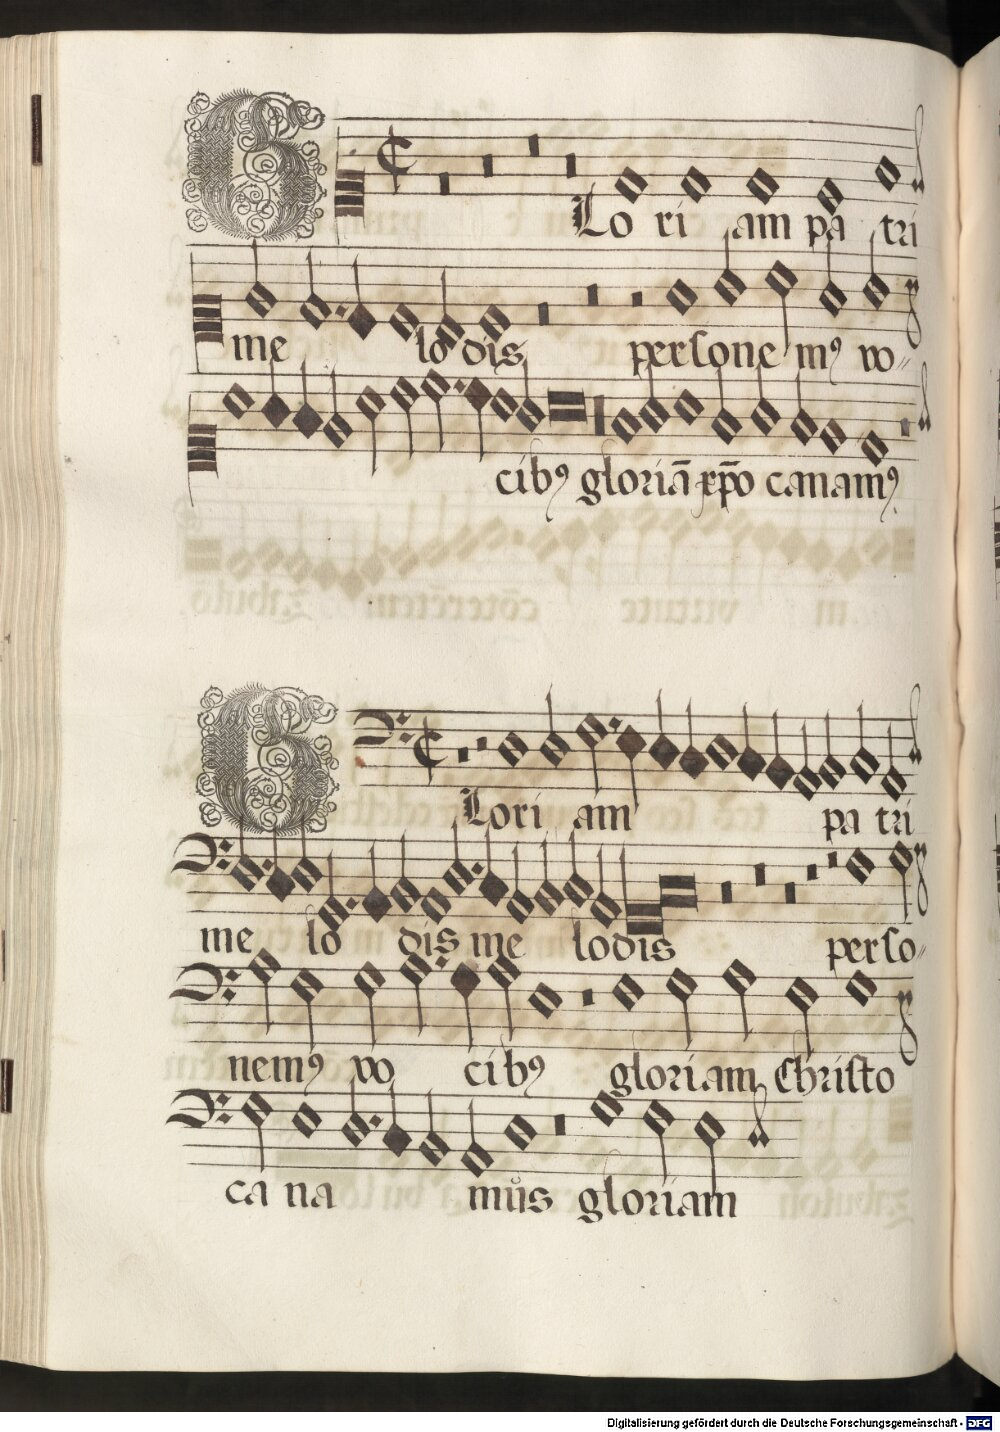 GLo ri am pa tri
me lo dis persone mꝰ vo-
cibꝰ gloriā xp̄o canamꝰ
GLori am pa tri
me lo dis me lodis perso-
nemꝰ vo cibꝰ gloriam Christo
ca na můs gloriam
Digitalisierung gefördert durch die Deutsche Forschungsgemeinschaft - DFG